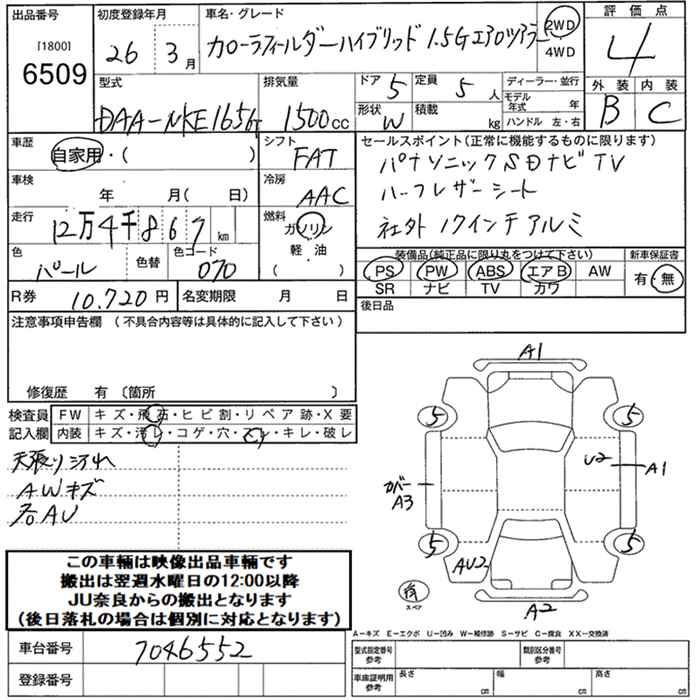 出品番号
[1800]
6509
初度登録年月
26 3月
車名・グレード
カローラフィールダーハイブリッド 1.5Gエアロツアラー
2WD
4WD
評価点
4
外装 内装
B C
型式
DAA-NKE165G
排気量
1500cc
ドア 5
形状 W
定員 5人
積載 kg
ディーラー・並行
モデル年式 年
ハンドル 左・右
車歴
自家用・( )
シフト
FAT
車検
年 月(日)
冷房
AAC
走行
12万4千867km
燃料
ガソリン
軽・油
( )
色
パール
色替
色コード
070
R券 10.720円
名変期限 月 日
セールスポイント(正常に機能するものに限ります)
パナソニックSDナビTV
ハーフレザーシート
社外17インチアルミ
装備品(純正品に限り丸をつけて下さい)
PS PW ABS エアB AW
SR ナビ TV カワ
新車保証書
有・無
後日品
注意事項申告欄(不具合内容等は具体的に記入して下さい)
修復歴 有〔箇所 〕
検査員
記入欄
FW キズ・飛石・ヒビ割・リペア跡・X要
内装 キズ・汚レ・コゲ・穴・スレ・キレ・破レ
天張り汚れ
AWキズ
各AU
この車輌は映像出品車輌です
搬出は翌週水曜日の12:00以降
JU奈良からの搬出となります
(後日落札の場合は個別に対応となります)
車台番号 7046552
登録番号
A1
5 5
U2 A1
カバー
A3
5 5
AU2
A2
有
スペア
A-キズ E-エクボ U-凹み W-補修跡 S-サビ C-腐食 XX-交換済
型式指定番号
参考
類別区分番号
参考
車庫証明用
参考
長さ cm
幅 cm
高さ cm